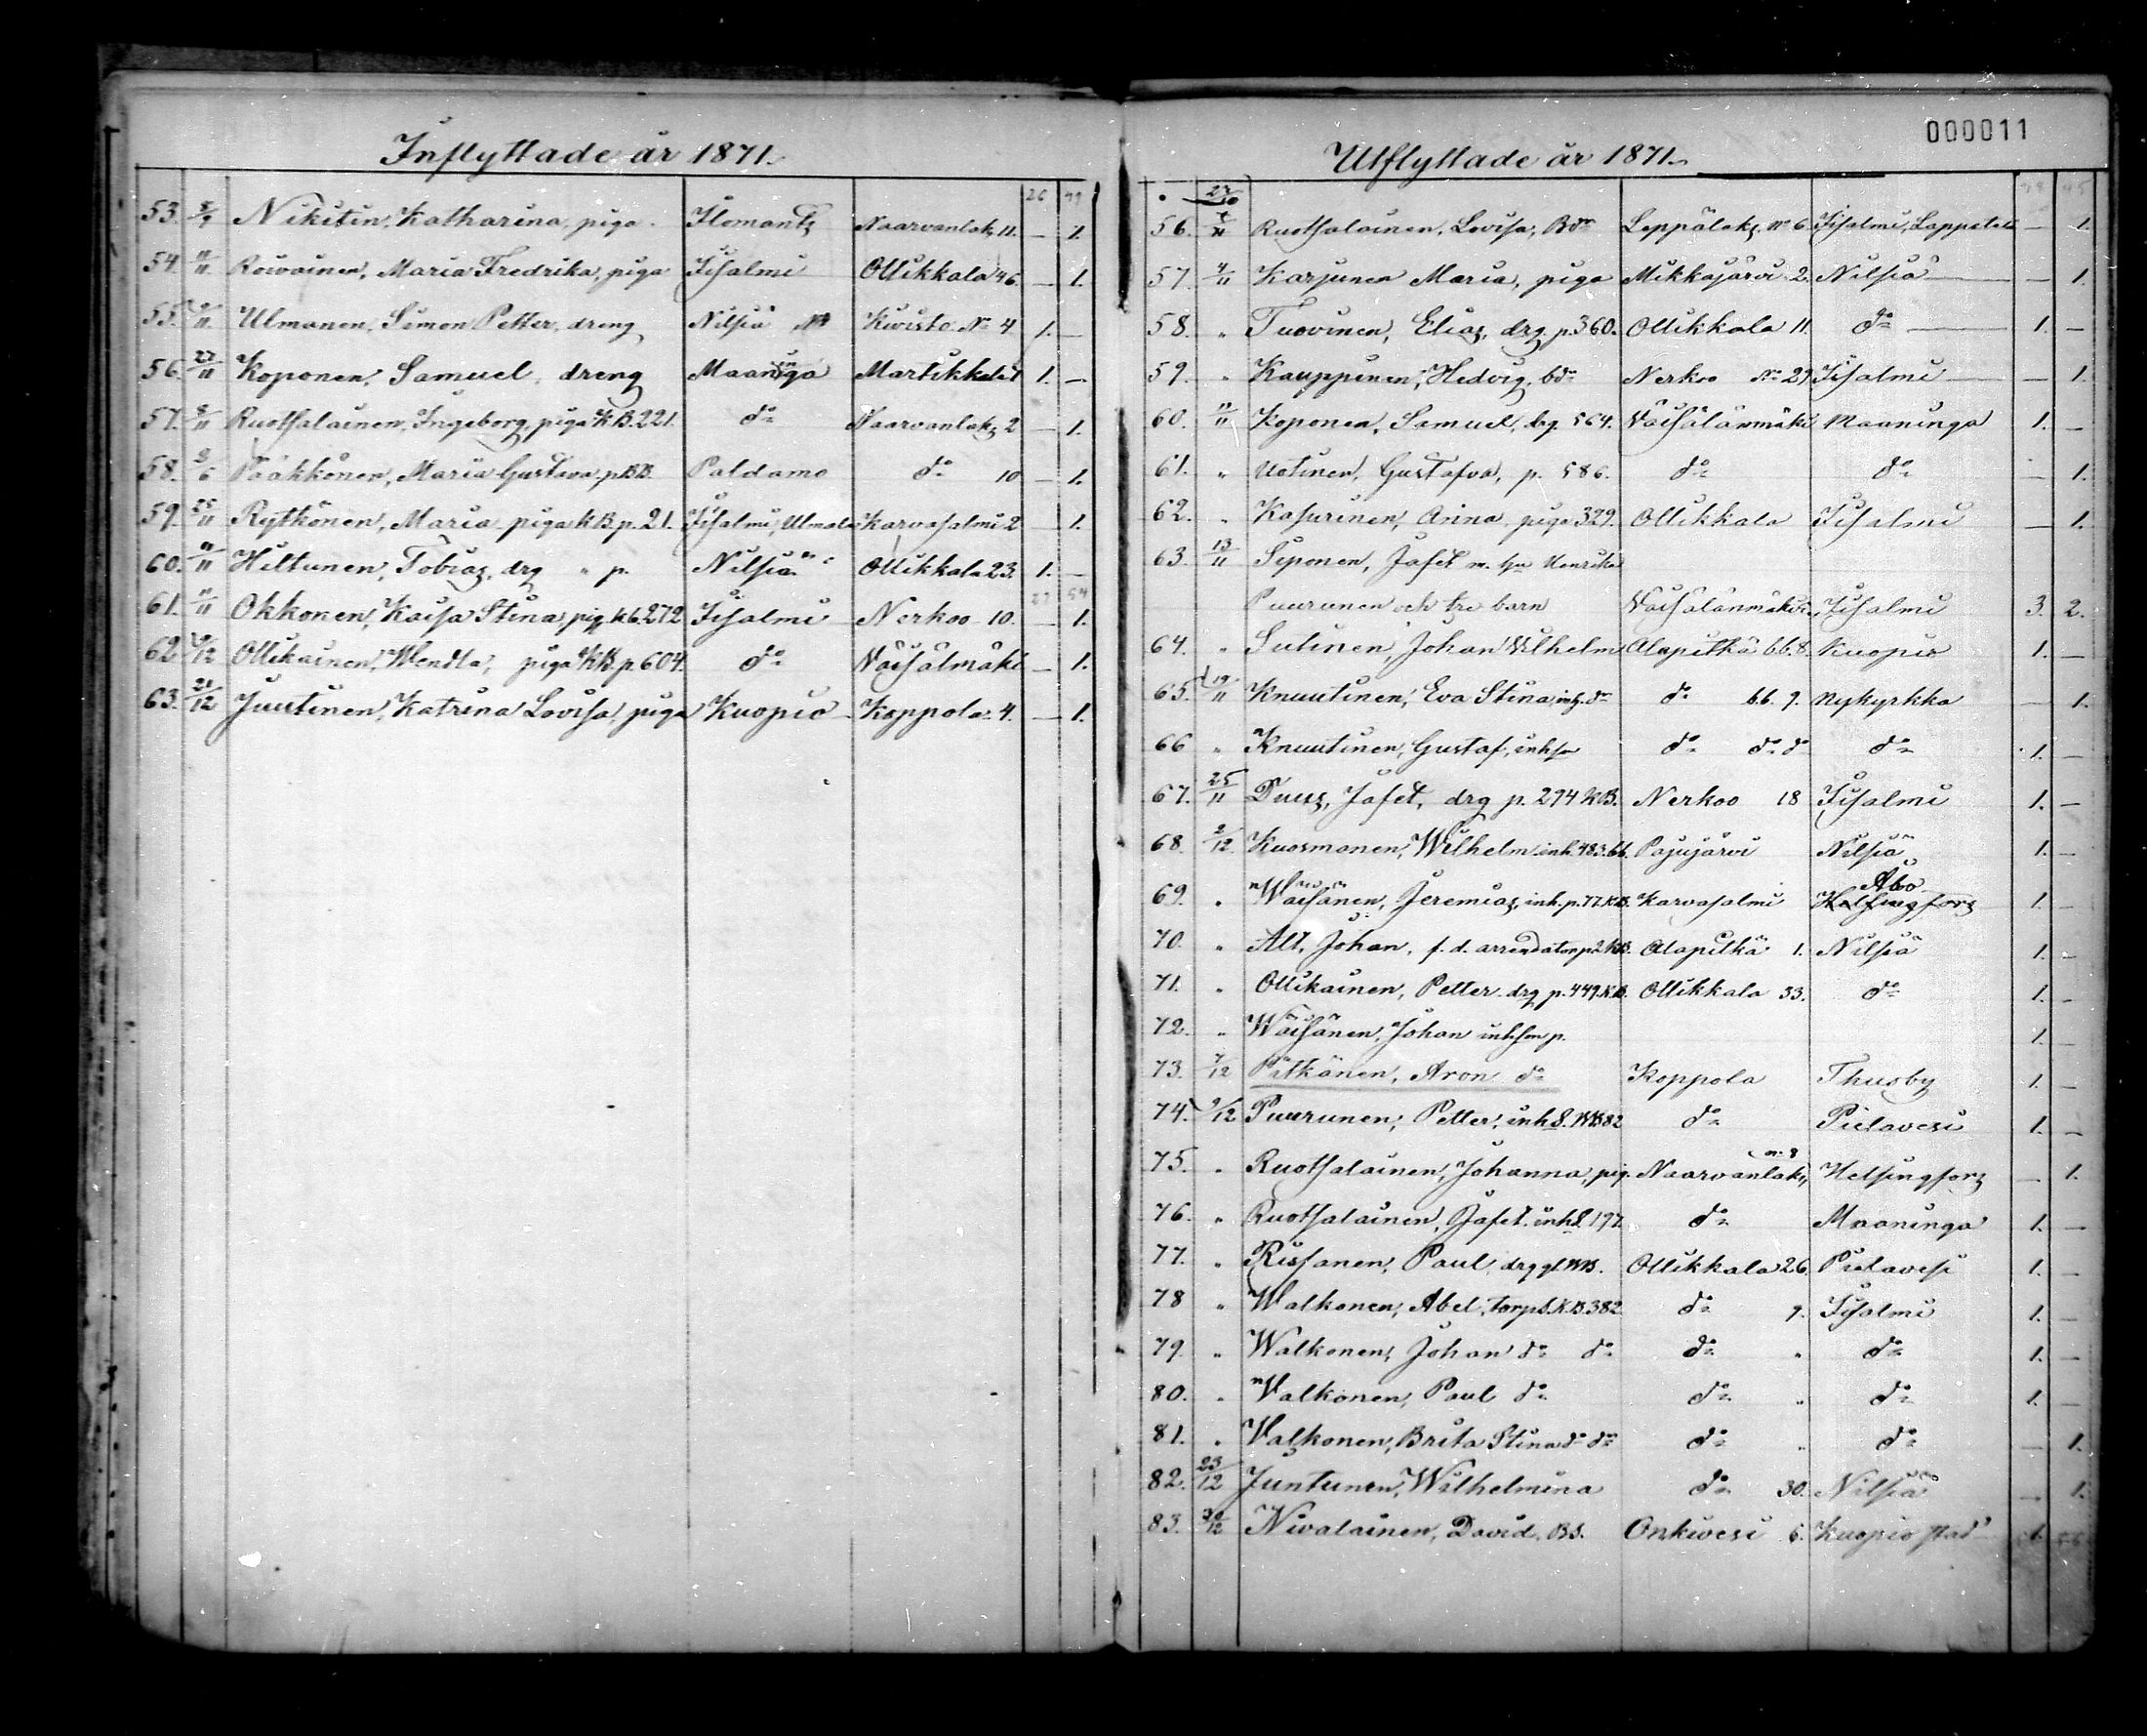 Inflyttade år 1871.
26 49
53. 8/9 Nikitin, Katharina, piga. Ilomants Naarvanlaks 11. — 1.
54. 11/11 Roivainen, Maria Fredrika, piga Iisalmi Ollikkala 46. — 1.
55. /11 Ulmanen, Simon Petter, dreng Nilsiä Kivisto No 4 1. —
56. 27/11 Koponen, Samuel, dreng Maaninga Martikkala 1 1. —
57. 8/11 Ruotsalainen, Ingeborg, piga KB. 221. do Naarvanlaks 2 — 1.
58. 2/6 Pääkkönen, Maria Gustava. p. KB. Paldamo do 10 — 1.
59. 25/11 Rytkönen, Maria piga KB. p. 21. Iisalmi, Ulmala Karvasalmi 2 — 1.
60. /11 Hiltunen, Tobias, drg " p. Nilsiä Ollikkala 23. 1. —
27 54
61. 11/11 Okkonen, Kaisa Stina pig. kb. 272 Iisalmi Nerkoo 10. — 1.
62 /12 Ollikainen, Wendla, piga KB. p. 604. do Väisälmäki — 1.
63. 21/12 Juutinen, Katrina Lovisa, piga Kuopio Koppola 4. — 1.
000011
Utflyttade år 1871.
27/10
56. Ruotsalainen, Lovisa, Bdr Leppälaks, No 6. Iisalmi, Lappetele — 1.
57. 4/11 Karjunen Maria, piga Mikkajärvi 2. Nilsiä — 1.
58. " Tuovinen, Elias, drg. p. 360. Ollikkala 11. do 1. —
59. " Kauppinen, Hedvig, bdr Nerkoo No 29 Iisalmi — 1.
60. 11/11 Koponen, Samuel, drg. 564. Väisälänmäki Maaninga 1. —
61. " Uotinen, Gustafva, p. 586. do do — 1.
62. " Kasurinen, Anna, piga 329. Ollikkala Iisalmi — 1.
63. 13/11 Seponen, Jafet m. hu Henrika
Puurunen och tre barn Väisälänmäki Iisalmi 3. 2.
64. " Sutinen, Johan Wilhelm Alapitkä bb. 8. Kuopio 1. —
65. 19/11 Knuutinen, Eva Stina, inh. dr do bb. 9. Nykyrkka — 1.
66 " Knuutinen, Gustaf, inhsn do do do do 1. —
67. 25/11 Puus, Jafet, drg p. 274 KB. Nerkoo 18 Iisalmi 1. —
68. 2/12 Kuosmanen, Wilhelm inh. 483. bb. Pajujärvi Nilsiä 1. —
Åbo
69. " Wäisänen, Jeremias, inh. p. 77. KB. Karvasalmi Helsingfors 1. —
70. " Alt, Johan, f. d. arrendator p. 2 KB. Alapitkä 1. Nilsiä 1. —
71. " Ollikainen, Petter drg p. 449. KB. Ollikkala 33. do 1. —
72. " Wäisänen, Johan inhsn p. 1. —
73. 7/12 Pitkänen, Aron do Koppola Thusby 1. —
74. 9/12 Puurunen, Petter, inh. S. KB 82 do Pielavesi 1. —
75. " Ruotsalainen, Johanna, pig. Naarvanlaks, n. 8 Helsingfors — 1.
76. " Ruotsalainen, Jafet. inh. S. 197. do Maaninga 1. —
77. " Rissanen, Paul, drg gl. KB. Ollikkala 26. Pielavesi 1. —
78 " Walkonen, Abel, torp. S. KB. 382 do 9. Iisalmi 1. —
79. " Walkonen, Johan do do do " do 1. —
80. " Walkonen, Paul do do " do 1. —
81. " Valkonen, Brita Stina do do do " do — 1.
82. 23/12 Juntunen, Wilhelmina do 30. Nilsiä — 1.
83. 30/12 Nivalainen, David, BS. Onkivesi 6. Kuopio stad 1.